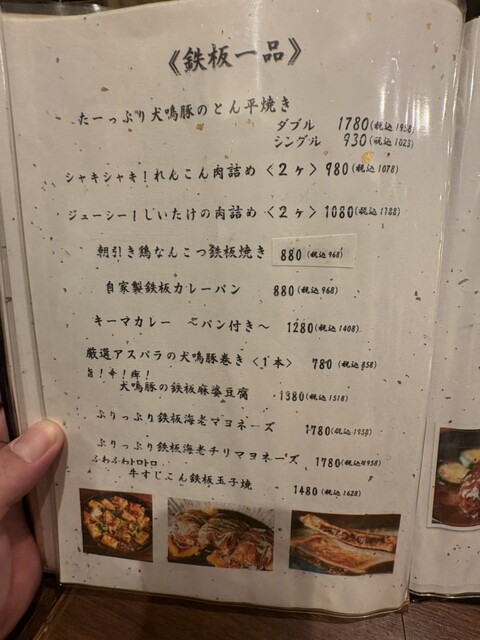 《鉄板一品》
たーっぷり犬鳴豚のとん平焼き
ダブル 1780(税込1958)
シングル 930(税込1023)
シャキシャキ!れんこん肉詰め〈2ヶ〉980(税込1078)
ジューシー!しいたけの肉詰め〈2ヶ〉1080(税込1188)
朝引き鶏なんこつ鉄板焼き 880(税込968)
自家製鉄板カレーパン 880(税込968)
キーマカレー ～パン付き～ 1280(税込1408)
厳選アスパラの犬鳴豚巻き〈1本〉 780(税込858)
旨!辛!痺!
犬鳴豚の鉄板麻婆豆腐 1380(税込1518)
ぷりっぷり鉄板海老マヨネーズ 1780(税込1958)
ぷりっぷり鉄板海老チリマヨネーズ 1780(税込1958)
ふわふわトロトロ
牛すじこん鉄板玉子焼 1480(税込1628)